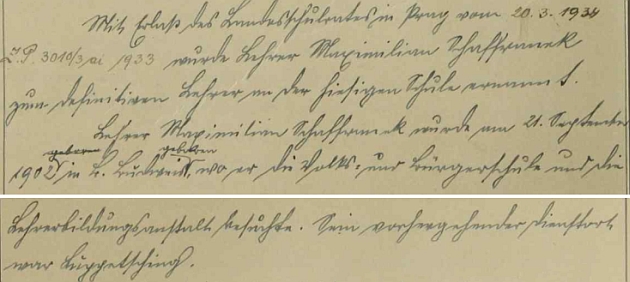 Mit Erlaß des Landesschulrates in Prag vom 20.3.1934
Z.P. 3010/3 ai 1933 wurde Lehrer Maximilian Schaffranek
zum definitiven Lehrer an der hiesigen Schule ernannt.
Lehrer Maximilian Schaffranek wurde am 21. September
geboren geboren
1902 in B. Budweis, wo er die Volks- und Bürgerschule und die
Lehrerbildungsanstalt besuchte. Sein vorhergehender Dienstort
war Luppetsching.